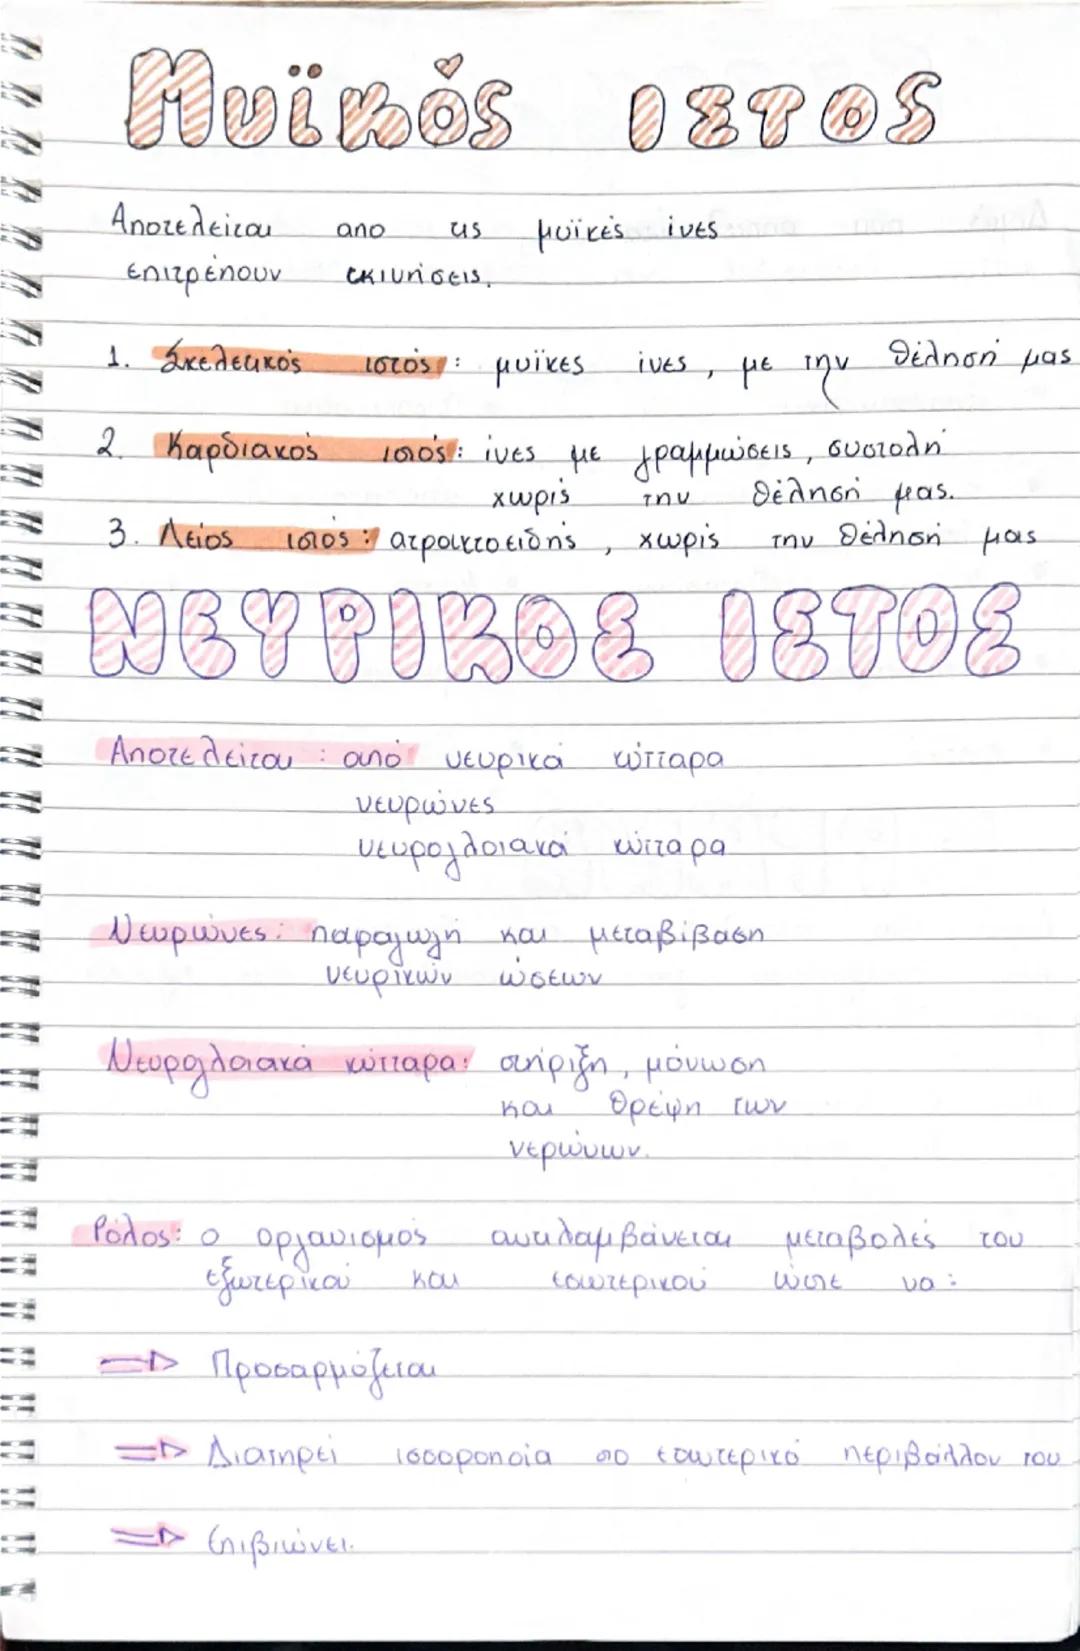 Μυϊκός ΙΣΤΟS
Αποτελείται απο τις μυϊκές ίνες
επιτρέπουν εκινήσεις.
1. Σκελετικός ιστός: μυϊκες ίνες, με την θέλησή μας
2. Καρδιακός ιστός: ίνες με γραμμώσεις, συστολή
χωρίς την θέλησή μας.
3. Λείος ιστός: ατρακτοειδής, χωρίς την θέλησή μας
ΝΕΥΡΙΚΟΣ ΙΣΤΟΣ
Αποτελείται: από νευρικά κύτταρα
νευρώνες
νευρογλοιακά κύτταρα
Νευρώνες: παραγωγή και μεταβίβαση
νευρικών ώσεων
Νευρογλοιακά κύτταρα: στήριξη, μόνωση
και θρέψη των
νερώνων.
Ρόλος: ο οργανισμός αντιλαμβάνεται μεταβολές του
εξωτερικού και εσωτερικού ώστε να:
⇒ Προσαρμόζεται
⇒ Διατηρεί ισορροποία στο εσωτερικό περιβάλλον του
⇒ Επιβιώνει.